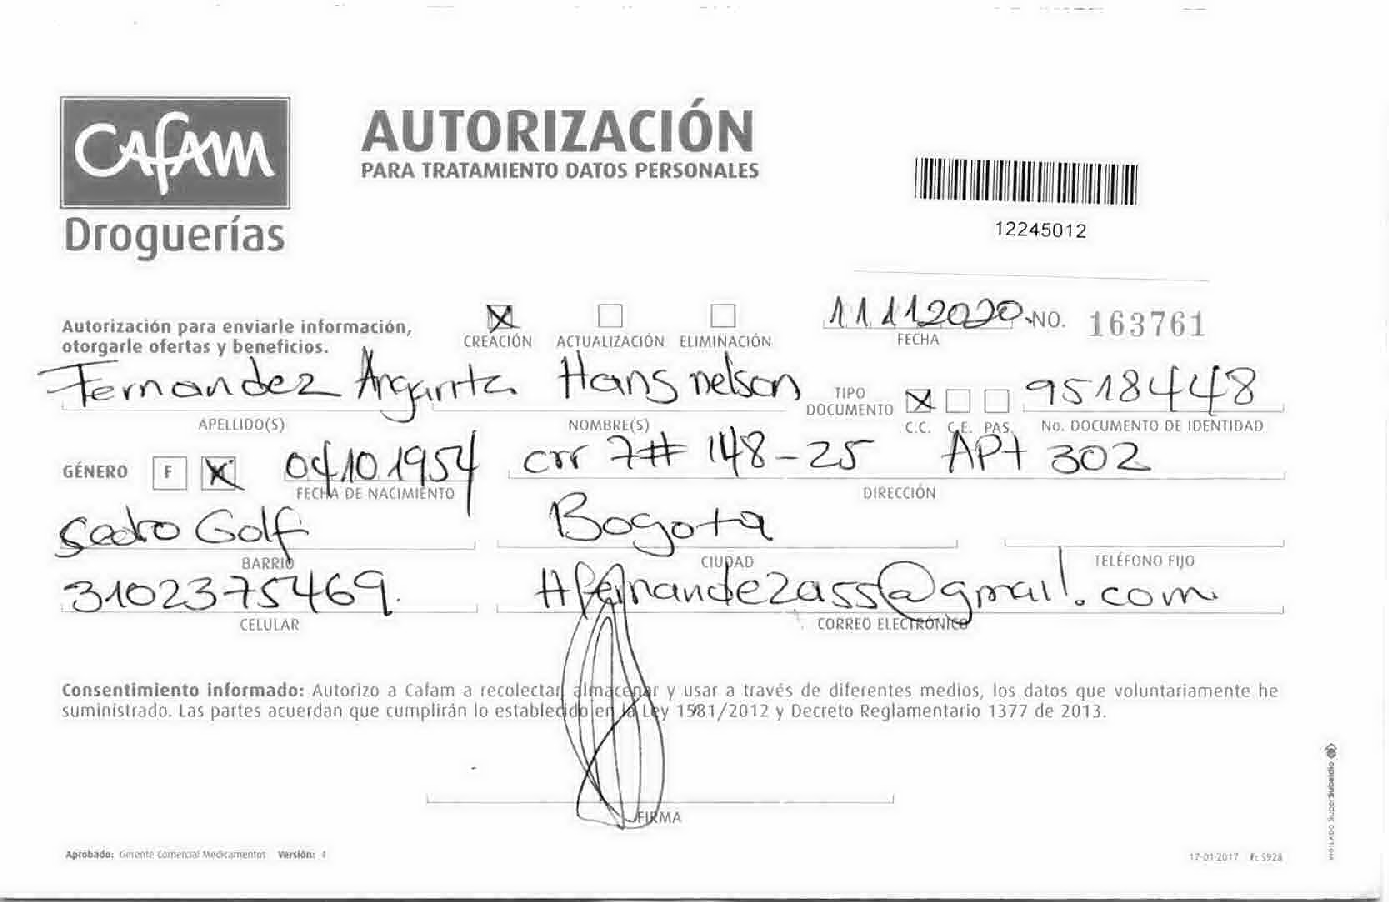 CAFAM
Droguerías
AUTORIZACIÓN
PARA TRATAMIENTO DATOS PERSONALES
12245012
Autorización para enviarle información,
otorgarle ofertas y beneficios.
CREACIÓN ACTUALIZACIÓN ELIMINACIÓN
11112020 NO. 163761
FECHA
Fernandez Hans nelson
TIPO DOCUMENTO
C.C. C.E. PAS.
9518448
APELLIDO(S) NOMBRE(S) No. DOCUMENTO DE IDENTIDAD
GÉNERO F
04.10.1954 crr 7# 148-25 APt 302
FECHA DE NACIMIENTO DIRECCIÓN
Golf Bogota
BARRIO CIUDAD TELÉFONO FIJO
3102375469. Hfernandezass@gmail.com
CELULAR CORREO ELECTRÓNICO
Consentimiento informado: Autorizo a Cafam a recolectar, almacenar y usar a través de diferentes medios, los datos que voluntariamente he
suministrado. Las partes acuerdan que cumplirán lo establecido en la Ley 1581/2012 y Decreto Reglamentario 1377 de 2013.
FIRMA
Aprobado: Gerente Comercial Medicamentos Versión: 4
17-01-2017 F: 5928
VIGILADO SuperSubsidio